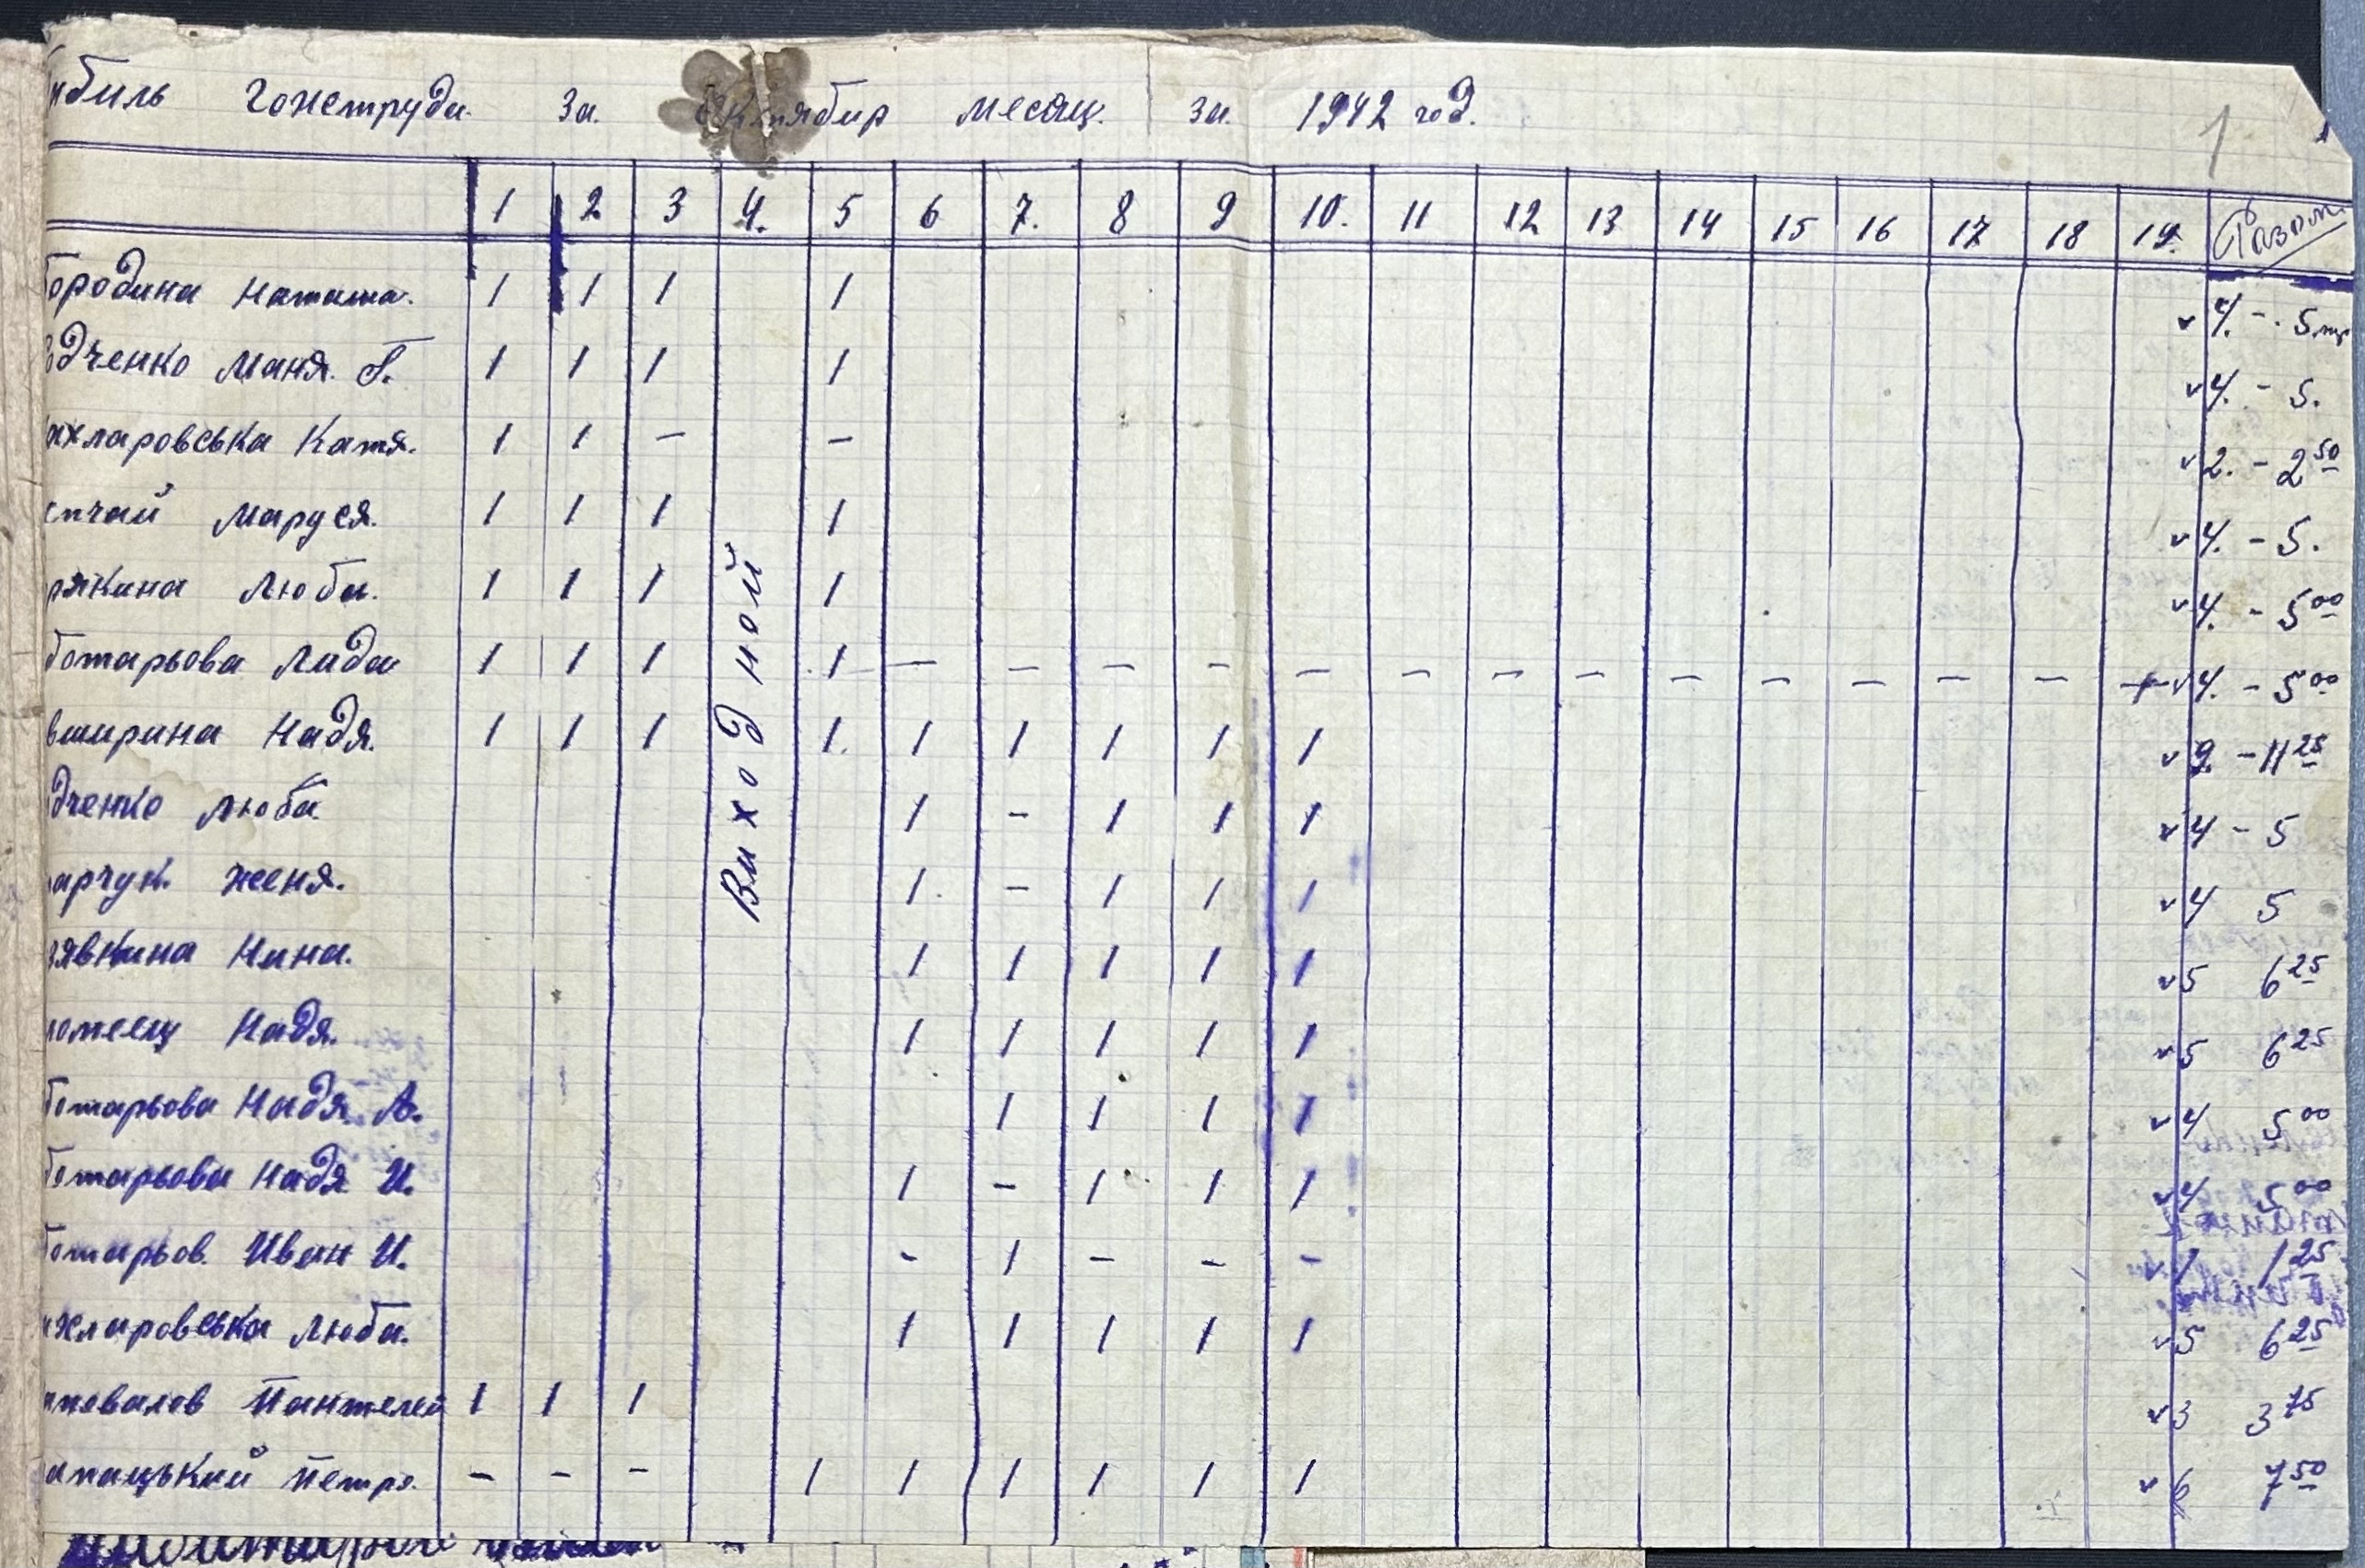 табиль гонетруда за Октябир месац за 1942 год.
1
1 2 3 4. 5 6 7. 8 9 10. 11 12 13 14 15 16 17 18 19. Разом
Бородина Наташа. 1 1 1 1 v 4. - 5
дченко Маня. Г. 1 1 1 1 v 4. - 5.
ахларовська Катя. 1 1 - - v 2. - 2 50
пчай Маруся. 1 1 1 1 v 4. - 5.
рякина Люба. 1 1 1 1 v 4. - 5 00
ботарьова Лида 1 1 1 1 - - - - - - - - - - - - - - v 4. - 5 00
вширина Надя. 1 1 1 1. 1 1 1 1 1 v 9. - 11 25
Виходной
дченко Люба 1 - 1 1 1 v 4 - 5
арчук. Женя. 1. - 1 1 1 v 4 5
зявкина Нина. 1 1 1 1 1 v 5 6 25
Надя. 1 1 1 1 1 v 5 6 25
ботарьова Надя А. 1 1 1 1 v 4 5 00
ботарьова Надя И. 1 - 1 1 1 v 4 5 00
ботарьов. Иван И. - 1 - - - v 1 1 25
ахларовська Люба. 1 1 1 1 1 v 5 6 25
аповалов Пантелей 1 1 1 v 3 3 75
апацький Петро. - - - 1 1 1 1 1 1 v 6 7 50